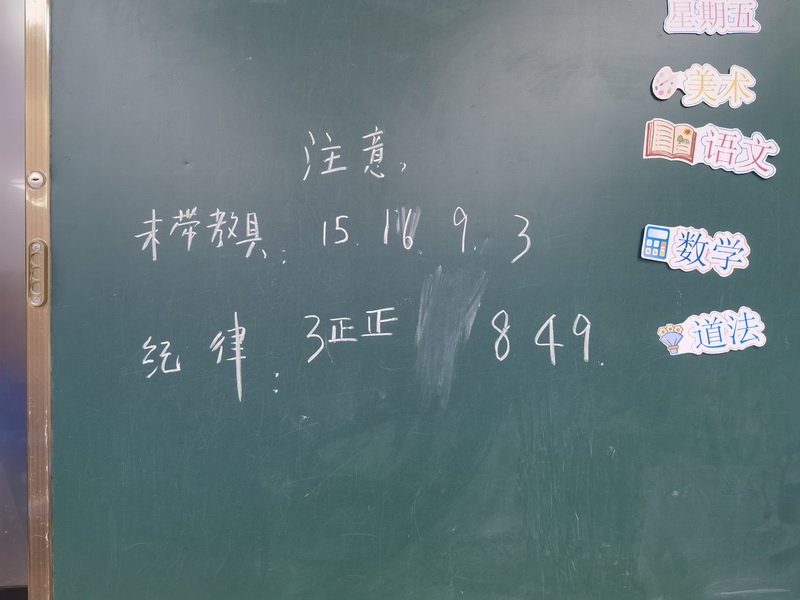 注意,
未带教具: 15. 16 9. 3
纪律: 3正正 8 49.
星期五
美术
语文
数学
道法